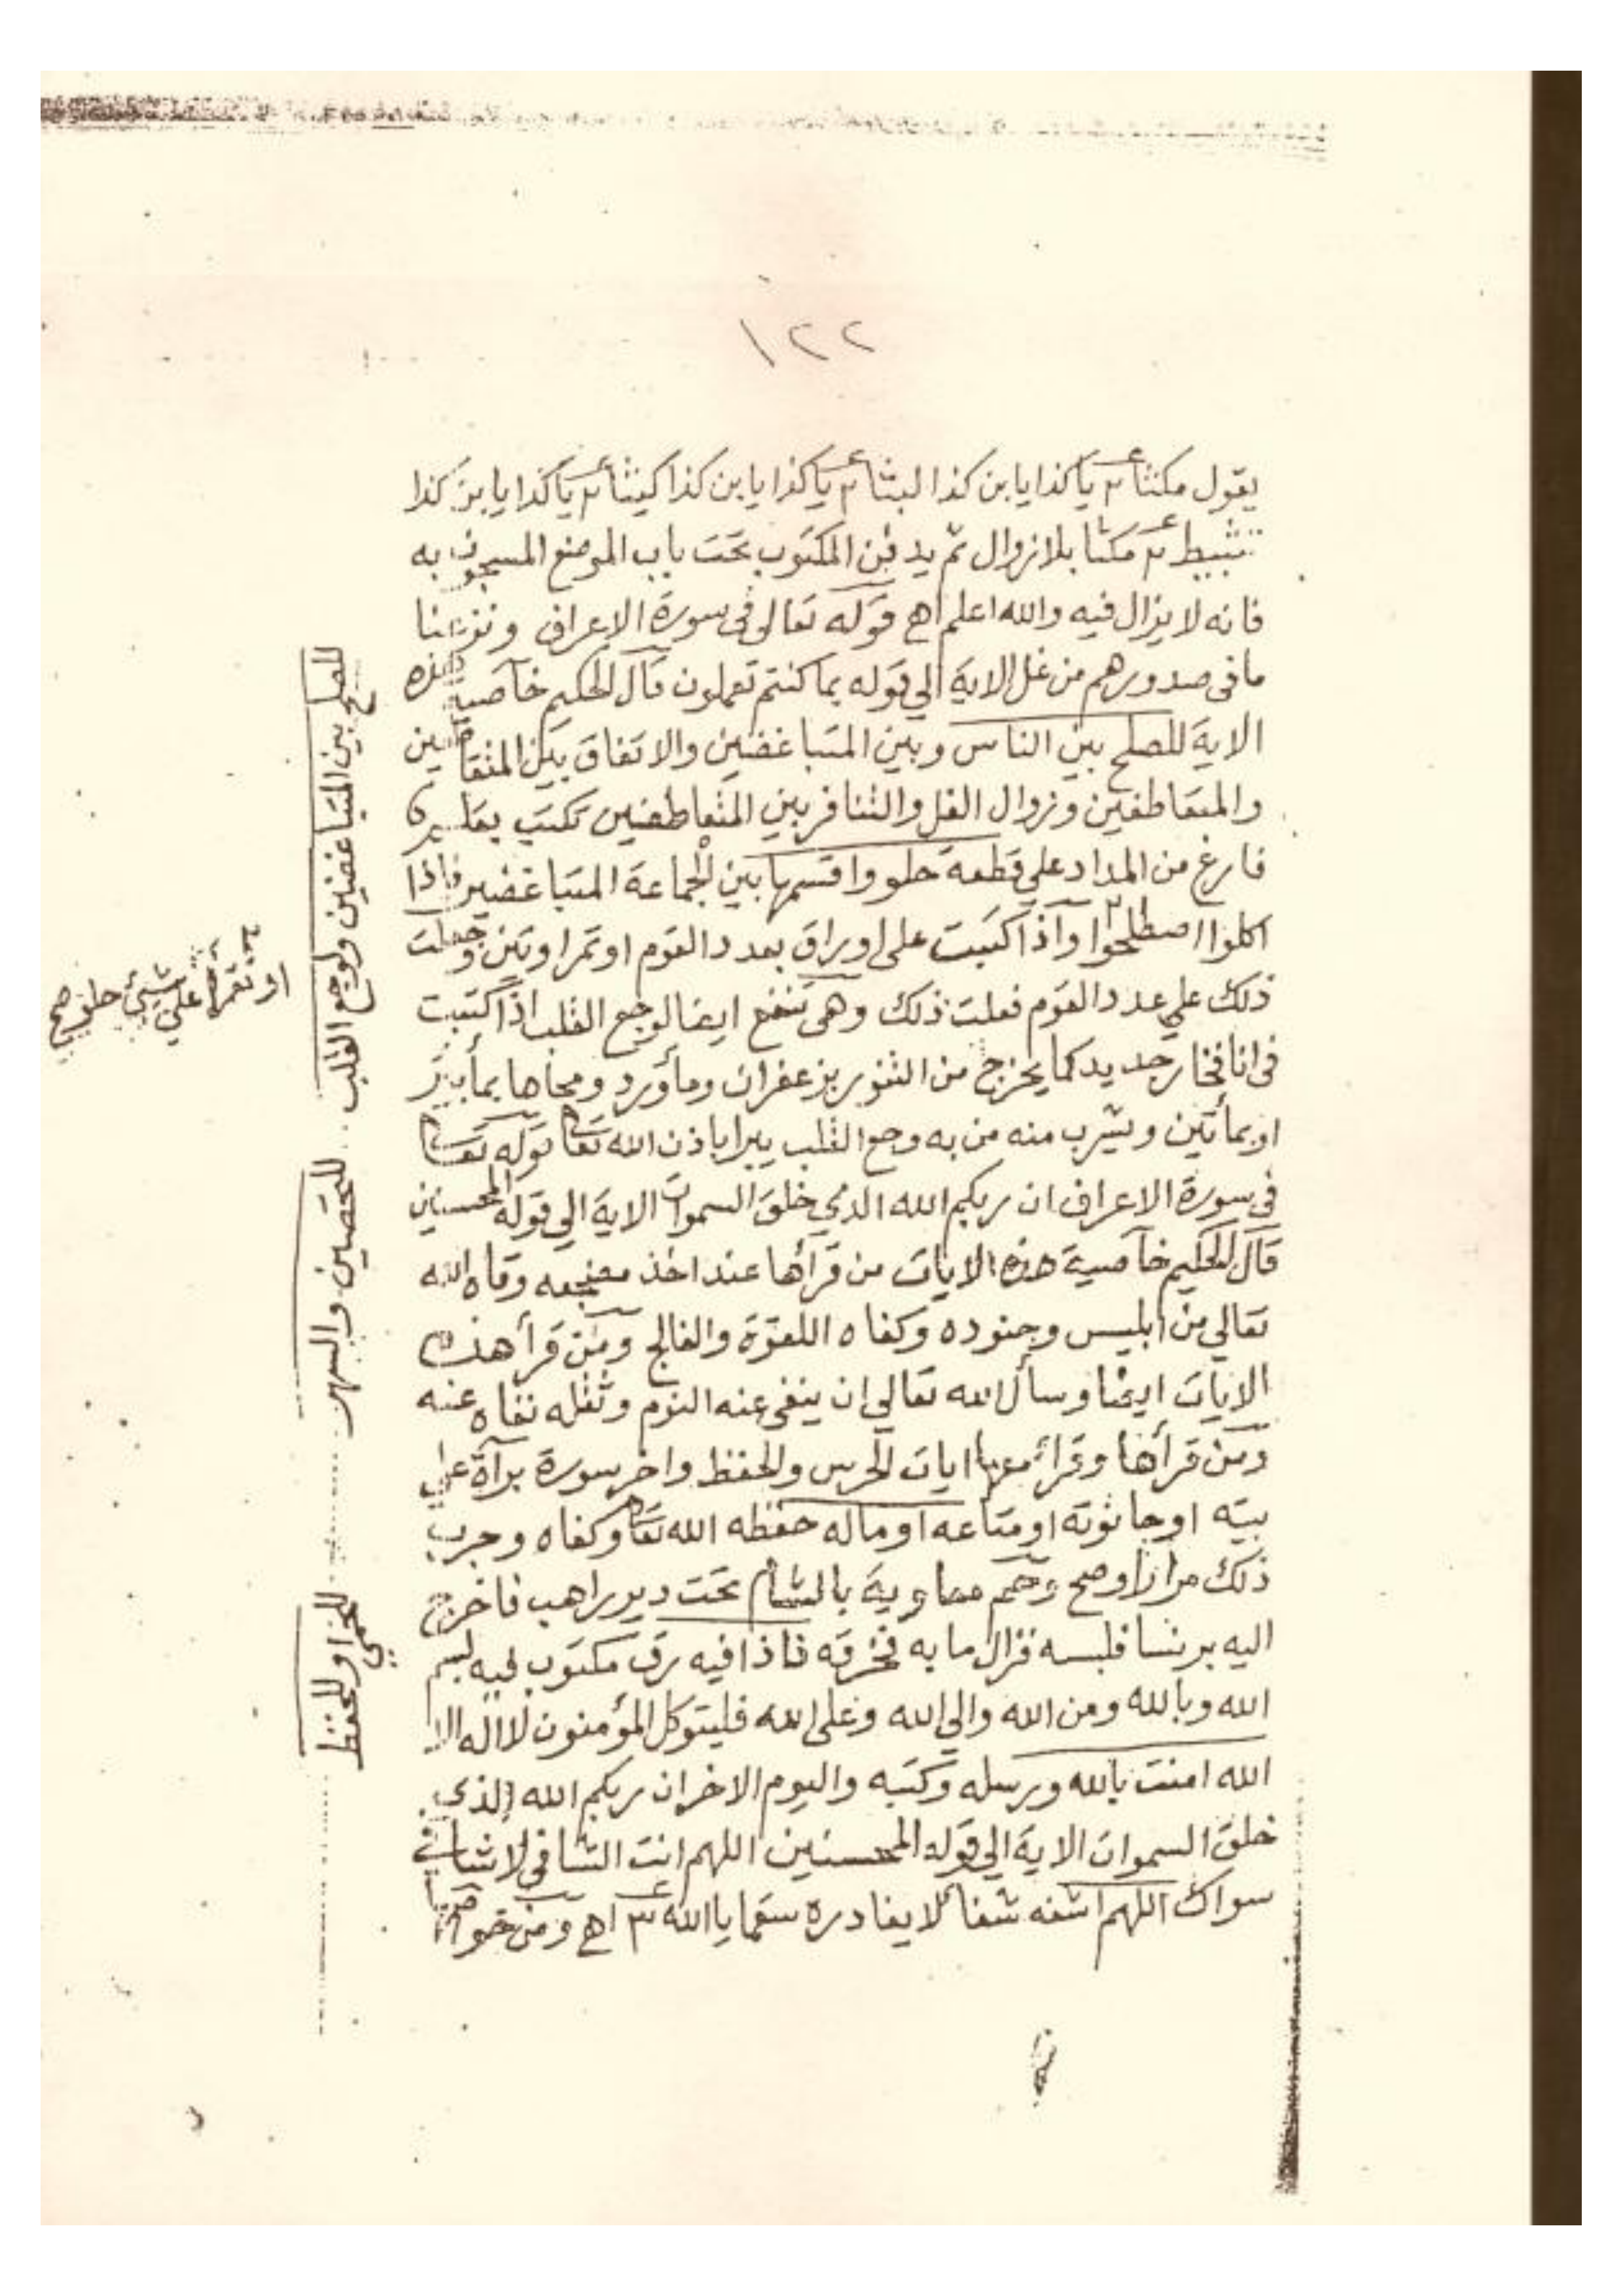 ١٢٢
يقول مكثا ٢ يا كذا يا بن كذا البثا ٢ يا كذا يا بن كذا كيثا ٢ يا كذا يا بن كذا
تثبيط ٢ مكثا بلا زوال ثم يدفن المكتوب تحت باب الموضع المسجون به
فانه لا يزال فيه والله اعلم اهـ قوله تعالى فى سورة الاعراف ونزعنا
ما فى صدورهم من غل الاية الي قوله بما كنتم تعملون قال الحكيم خاصية هذه
الاية للصلح بين الناس وبين المتباغضين والاتفاق بين
والمتقاطعين وزوال الغل والتنافر بين المتقاطعين تكتب بقلم
فارغ من المداد علي قطعة حلو واقسمها بين الجماعة المتباغضين فاذا
اكلوا اصطلحوا واذا كتبت على اوراق بعدد القوم او تمر او تين وجعلت
ذلك علي عدد القوم فعلت ذلك وهى تنفع ايضا لوجع القلب اذا كتبت
فى انا فخار جديد كما يخرج من التنور بزعفران ومأورد ومحاها بمأ بئر
او بمأ تين ويشرب منه من به وجع القلب يبرا باذن الله تعالى قوله تعالى
فى سورة الاعراف ان ربكم الله الذي خلق السموات الاية الي قوله المحسنين
قال الحكيم خاصية هذه الايات من قرأها عند اخذ مضجعه وقاه الله
تعالي من ابليس وجنوده وكفاه اللقوة والفالج ومن قرأ هذه
الايات ايضا وسأل الله تعالي ان ينفى عنه النوم وثقله نفاه عنه
ومن قرأها وقرأ معها ايات الحرس والحفظ واخر سورة برآة على
بيته او حانوته او متاعه او ماله حفظه الله تعالى وكفاه وجرب
ذلك مرارا وصح وحم معاوية بالشام تحت دير راهب فاخرج
اليه برنسا فلبسه فزال ما به فخرقه فاذا فيه رق مكتوب فيه بسم
الله وبالله ومن الله والي الله وعلى الله فليتوكل المؤمنون لا اله الا
الله امنت بالله ورسله وكتبه واليوم الاخر ان ربكم الله الذي
خلق السموات الاية الي قوله المحسنين اللهم انت الشافى لا شافي
سواك اللهم اشفه شفأ لا يغادره سقما يا الله ٣ اهـ ومن خواص
للصلح بين المتباغضين ولوجع القلب
او تقرأ علي شيئ حلو صح
للتحصين والسهر
للحمى وللحفظ